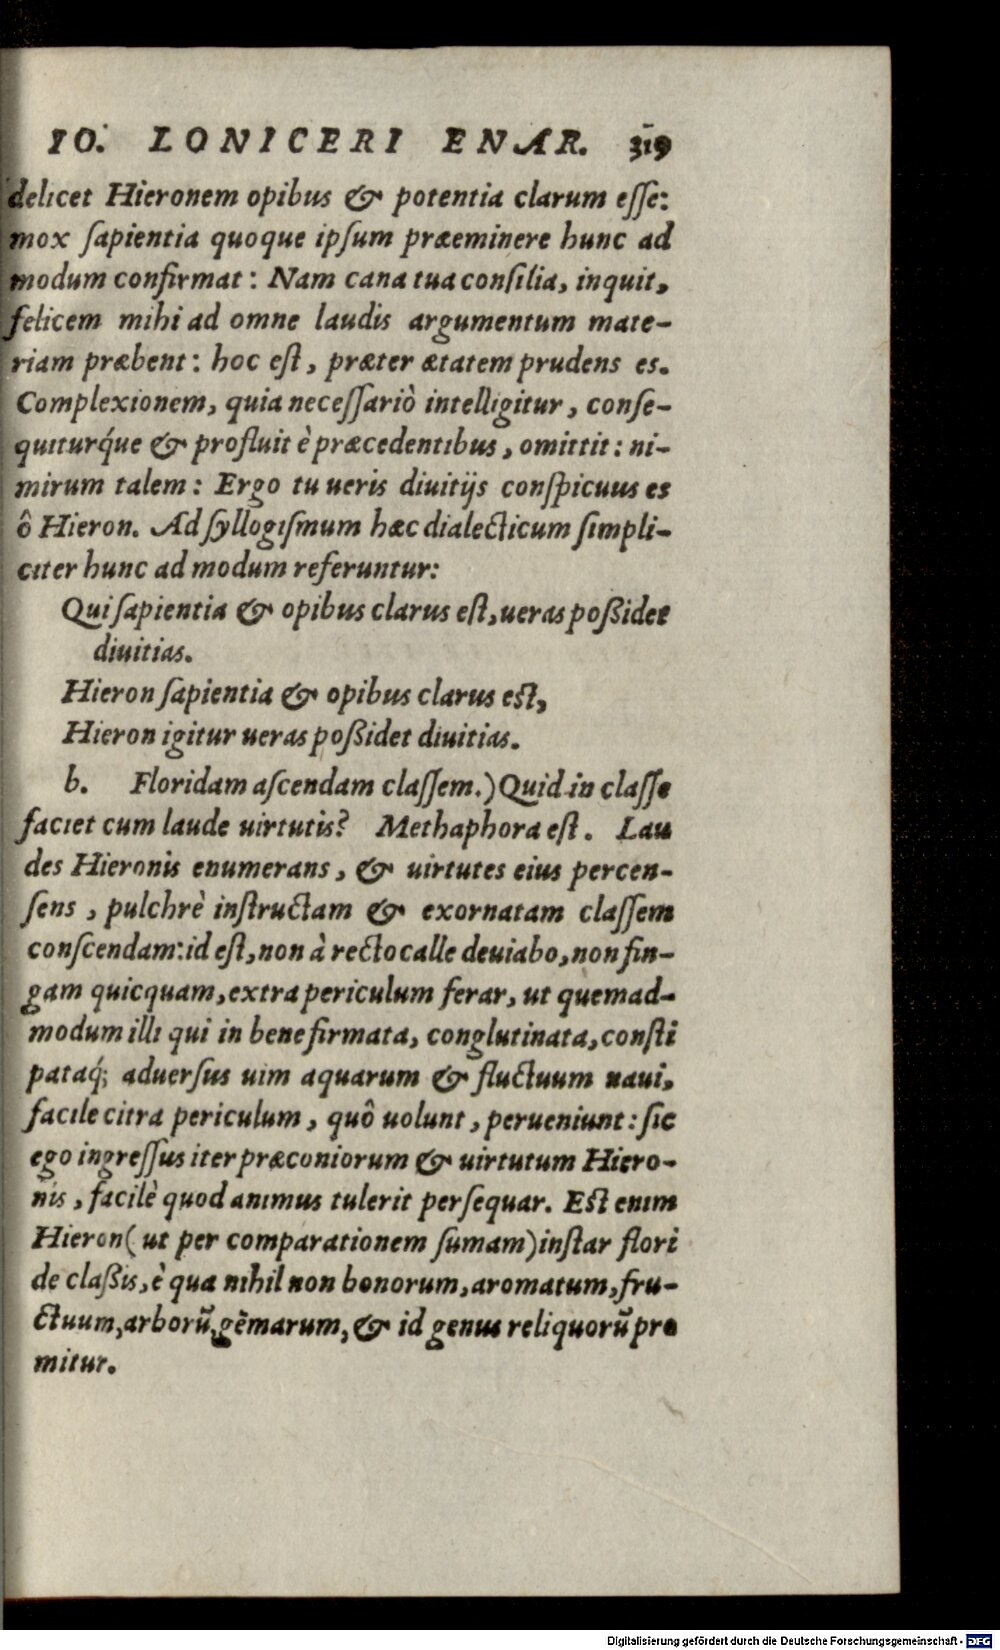 IO. LONICERI ENAR. 319
delicet Hieronem opibus & potentia clarum eſſe:
mox ſapientia quoque ipſum præeminere hunc ad
modum confirmat: Nam cana tua conſilia, inquit,
felicem mihi ad omne laudis argumentum mate-
riam præbent: hoc eſt, præter ætatem prudens es.
Complexionem, quia neceſſariò intelligitur, conſe-
quiturq́ue & profluit è præcedentibus, omittit: ni-
mirum talem: Ergo tu ueris diuitijs conſpicuus es
ô Hieron. Ad ſyllogiſmum hæc dialecticum ſimpli-
citer hunc ad modum referuntur:
Qui ſapientia & opibus clarus eſt, ueras poßidet
diuitias.
Hieron ſapientia & opibus clarus eſt,
Hieron igitur ueras poßidet diuitias.
b. Floridam aſcendam claſſem.) Quid in claſſe
faciet cum laude uirtutis? Methaphora eſt. Lau
des Hieronis enumerans, & uirtutes eius percen-
ſens, pulchrè inſtructam & exornatam claſſem
conſcendam: id eſt, non à recto calle deuiabo, non fin-
gam quicquam, extra periculum ferar, ut quemad-
modum illi qui in bene firmata, conglutinata, conſti
pataq́; aduerſus uim aquarum & fluctuum naui,
facile citra periculum, quô uolunt, perueniunt: ſic
ego ingreſſus iter præconiorum & uirtutum Hiero-
nis, facilè quod animus tulerit perſequar. Eſt enim
Hieron (ut per comparationem ſumam) inſtar flori
de claßis, è qua nihil non bonorum, aromatum, fru-
ctuum, arborũ, gẽmarum, & id genus reliquorũ pro
mitur.
Digitalisierung gefördert durch die Deutsche Forschungsgemeinschaft - DFG